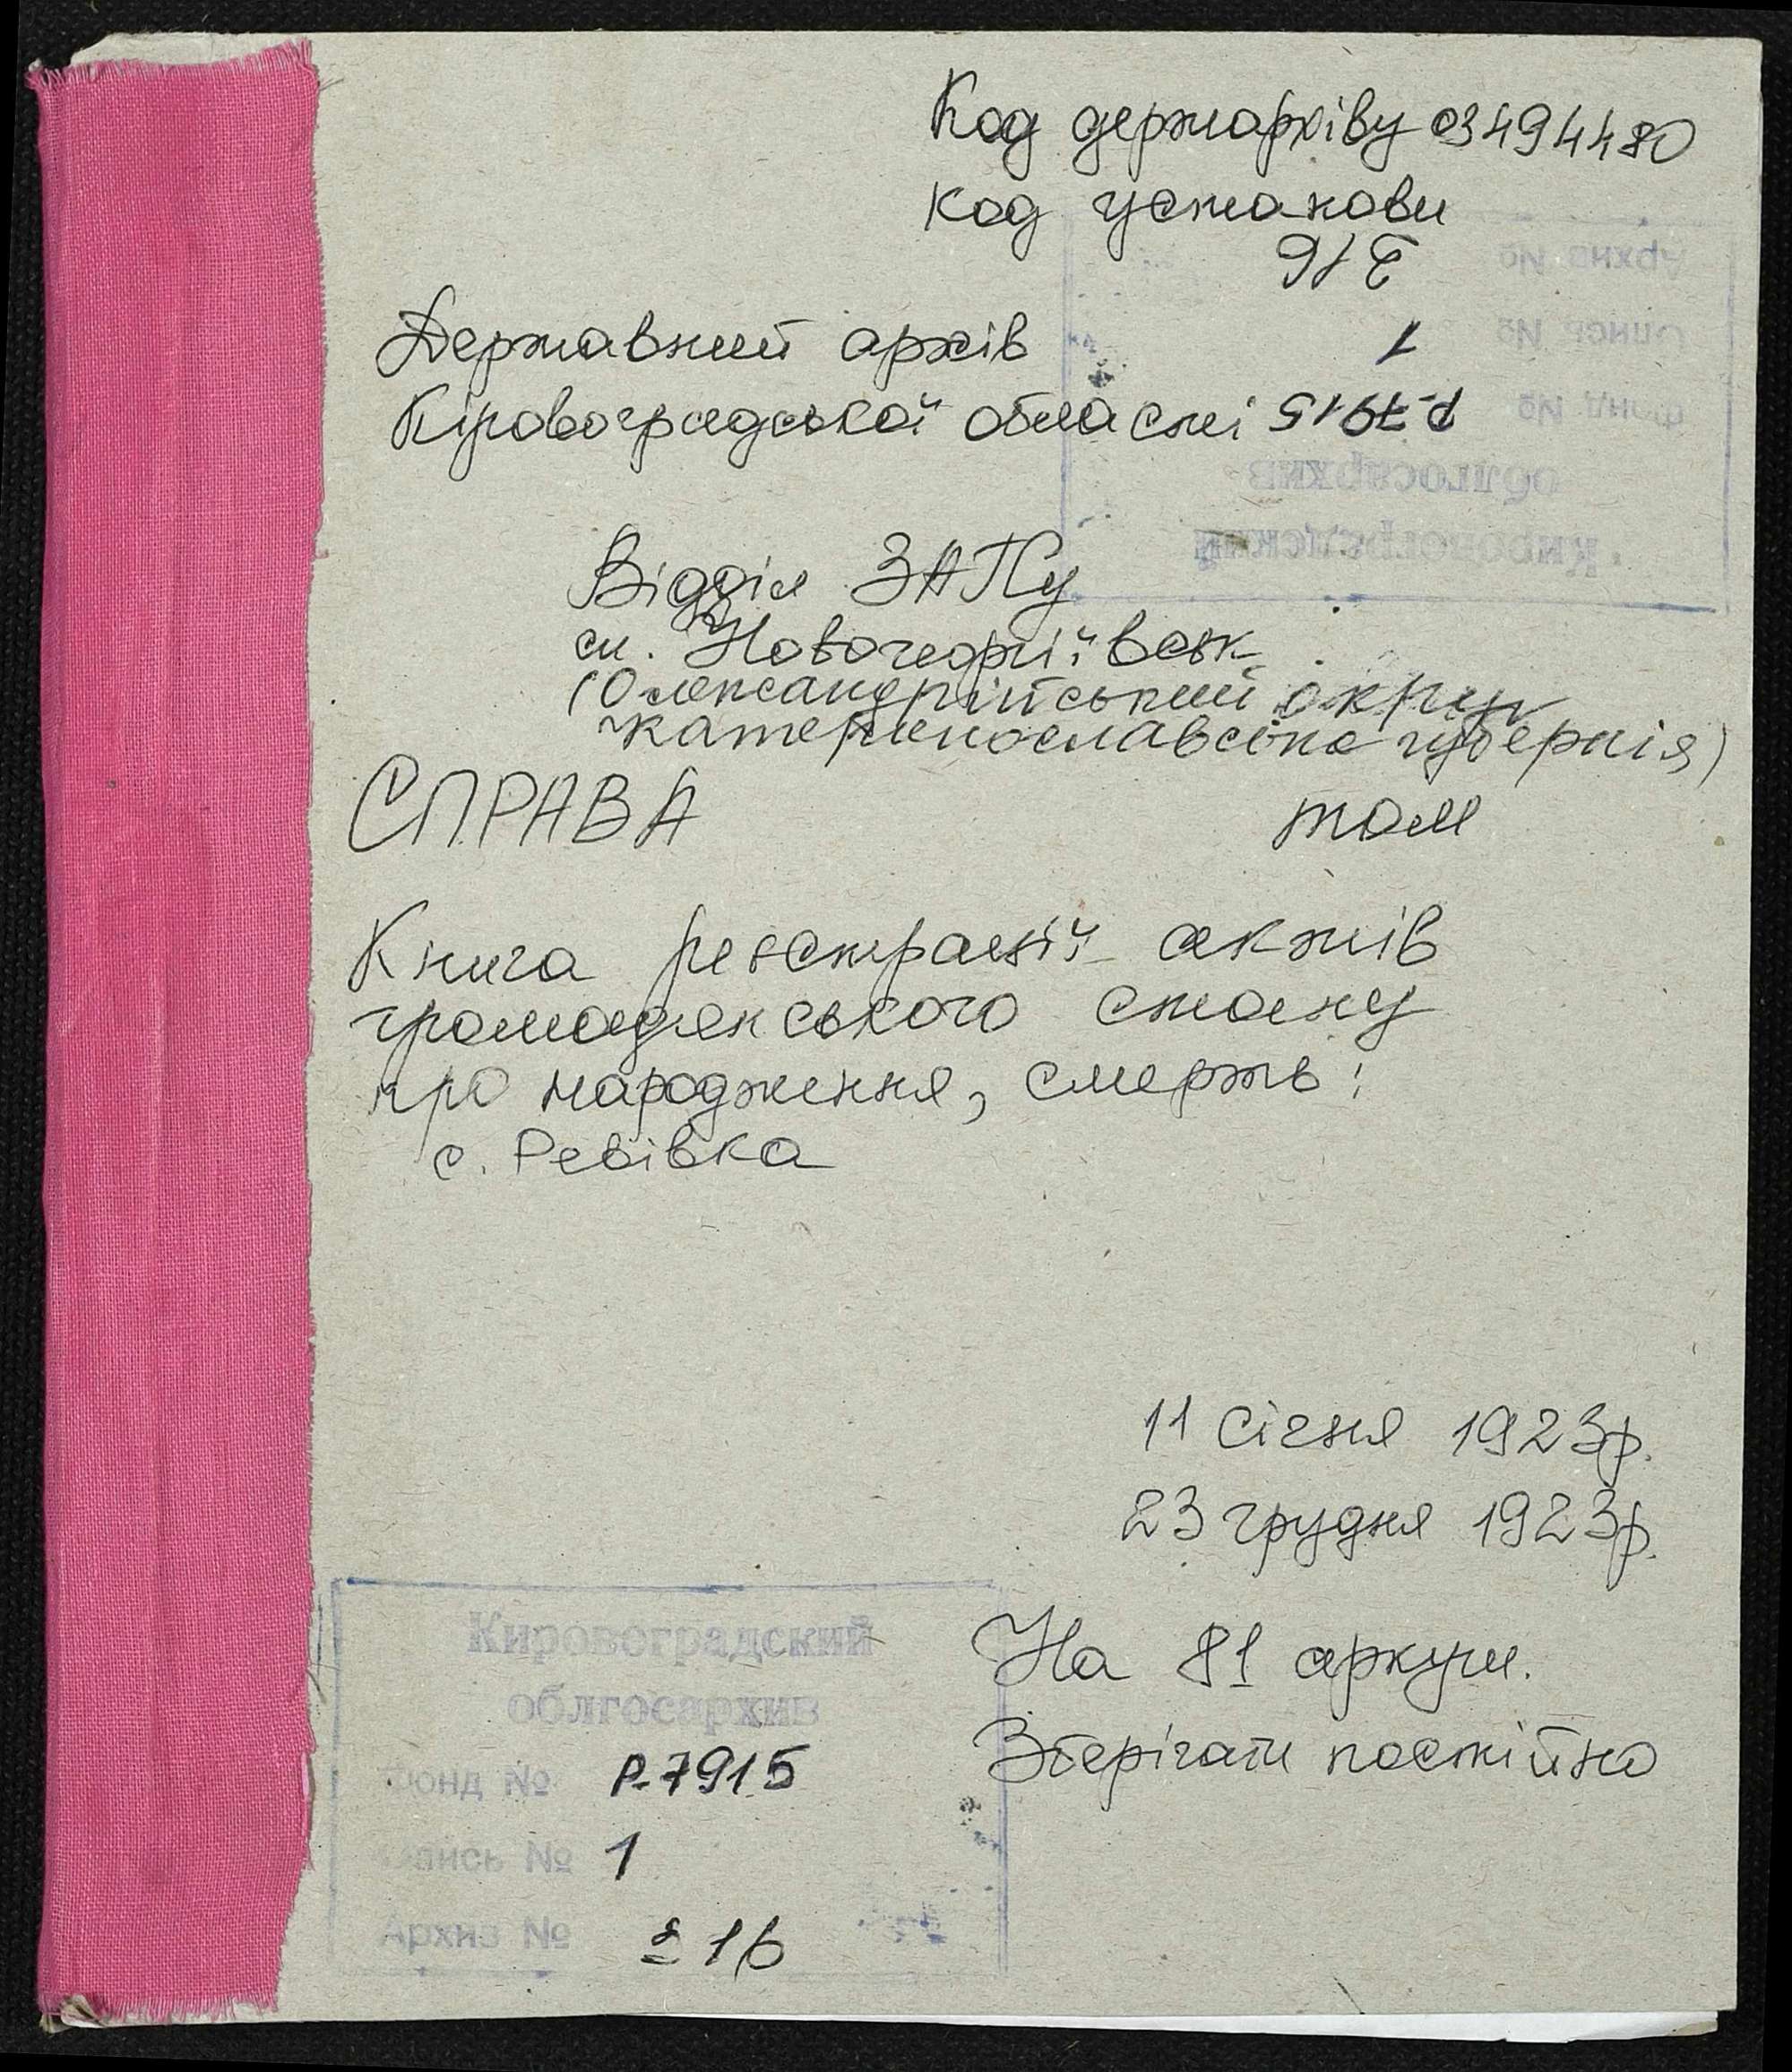 Код держархіву 03494480
код установи
Державний архів
Кіровоградської області
Кировоградский
облгосархив
Фонд № Р-7915
Опись № 1
Архив № 216
Відділ ЗАГСу
см. Новогеоргіївськ
(Олександрійський округ
Катеринославська губернія)
СПРАВА том
Книга реєстрації актів
громадянського стану
про народження, смерть:
с. Ревівка
11 січня 1923р.
23 грудня 1923р.
На 81 аркуш.
Зберігати постійно
Кировоградский
облгосархив
Фонд № Р-7915
Опись № 1
Архив № 216